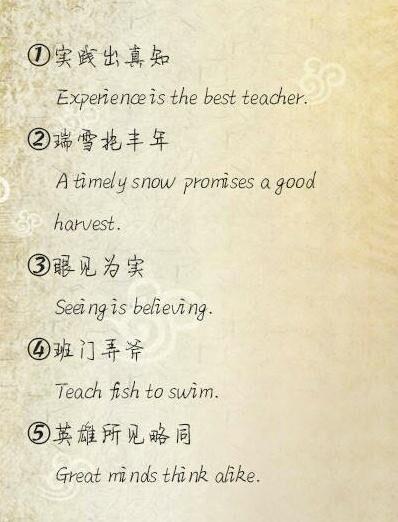 ①实践出真知
Experience is the best teacher.
②瑞雪抱丰年
A timely snow promises a good
harvest.
③眼见为实
Seeing is believing.
④班门弄斧
Teach fish to swim.
⑤英雄所见略同
Great minds think alike.